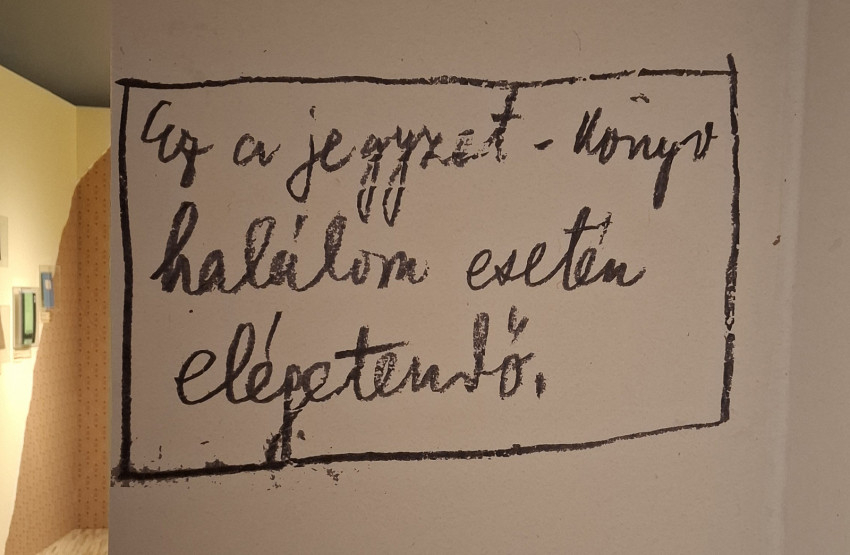 Ez a jegyzet - könyv
halálom esetén
elégetendő.